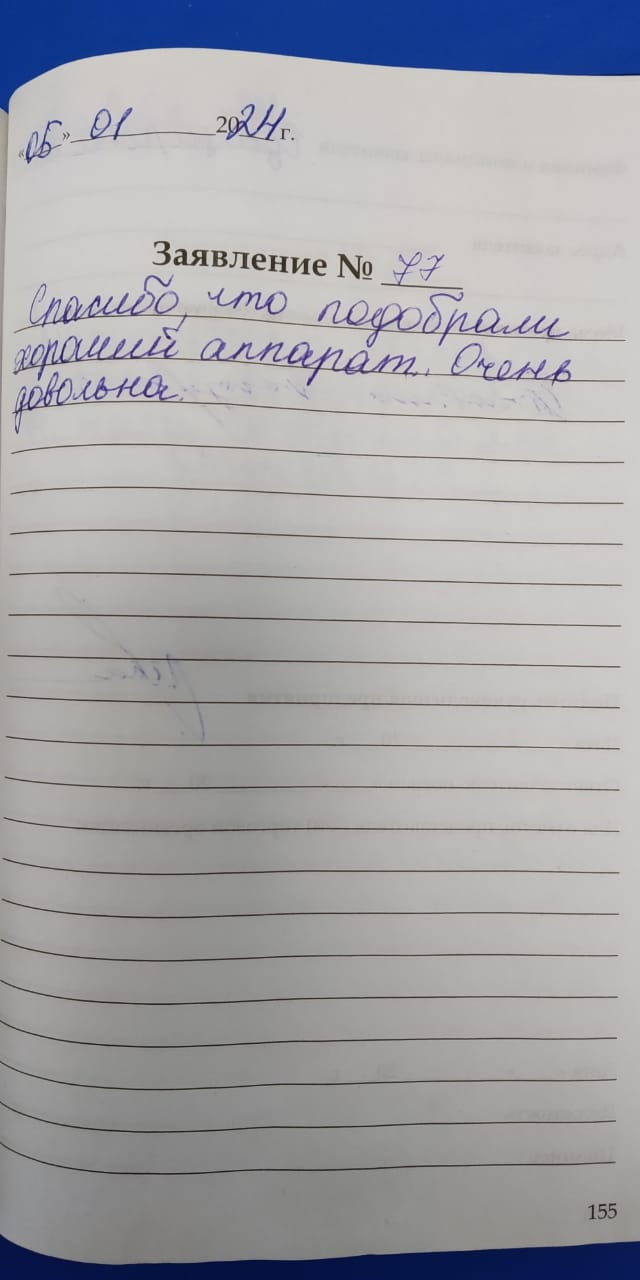 «05» 01 2024 г.
Заявление № 77
Спасибо, что подобрали
хороший аппарат. Очень
довольна.
155